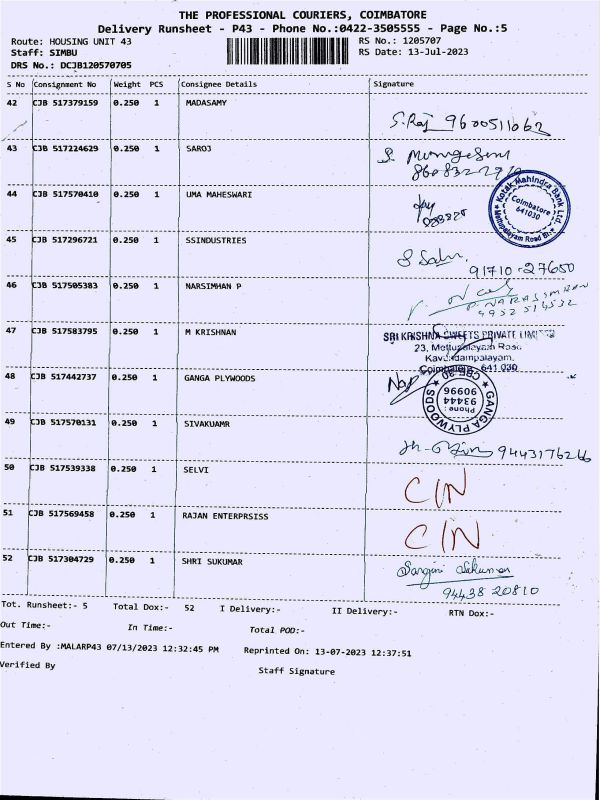 THE PROFESSIONAL COURIERS, COIMBATORE
Delivery Runsheet - P43 - Phone No.:0422-3505555 - Page No.:5
Route: HOUSING UNIT 43 RS No.: 1205707
Staff: SIMBU RS Date: 13-Jul-2023
DRS No.: DCJB120570705
S No Consignment No Weight PCS Consignee Details Signature
42 CJB 517379159 0.250 1 MADASAMY
S. Raj 9600511062
43 CJB 517224629 0.250 1 SAROJ
S
44 CJB 517570410 0.250 1 UMA MAHESWARI
Kotak Mahindra Bank Ltd.
Coimbatore
641030
Mettupalayam Road Br.
45 CJB 517296721 0.250 1 SSINDUSTRIES
91710-27650
46 CJB 517505383 0.250 1 NARSIMHAN P
P. NARASIMHAN
47 CJB 517583795 1 M KRISHNAN
0.250
SRI KRISHNA SWEETS PRIVATE LIMITED
23, Mettupalayam Road
Kavundampalayam,
Coimbatore 641 030
48 CJB 517442737 0.250 1 GANGA PLYWOODS
GANGA PLYWOODS
CBE-30
Phone :
93444
90966
49 CJB 517570131 0.250 1 SIVAKUAMR
9443176266
50 CJB 517539338 0.250 1 SELVI
C/N
51 CJB 517569458 0.250 1 RAJAN ENTERPRSISS
C/N
52 CJB 517304729 0.250 1 SHRI SUKUMAR
94438 20810
Tot. Runsheet:- 5 Total Dox:- 52 I Delivery:- II Delivery:- RTN Dox:-
Out Time:- In Time:- Total POD:-
Entered By :MALARP43 07/13/2023 12:32:45 PM Reprinted On: 13-07-2023 12:37:51
Verified By Staff Signature